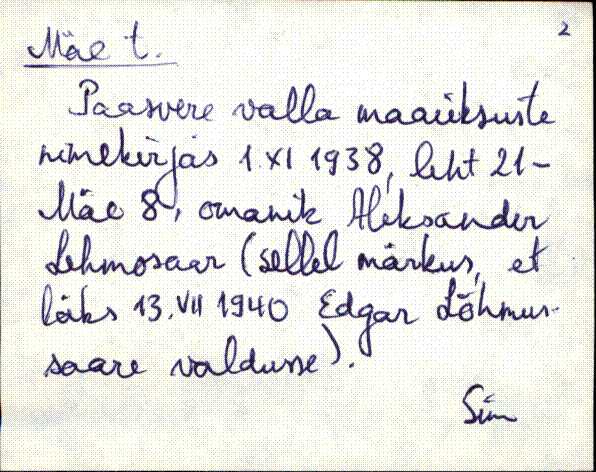 2
Mäe t.
Paasvere valla maaüksuste
nimekirjas 1.XI 1938, leht 21-
Mäe 8, omanik Aleksander
Lehmosaar (sellel märkus, et
läks 13.VII 1940 Edgar Lõhmus-
saare valdusse).
Sim